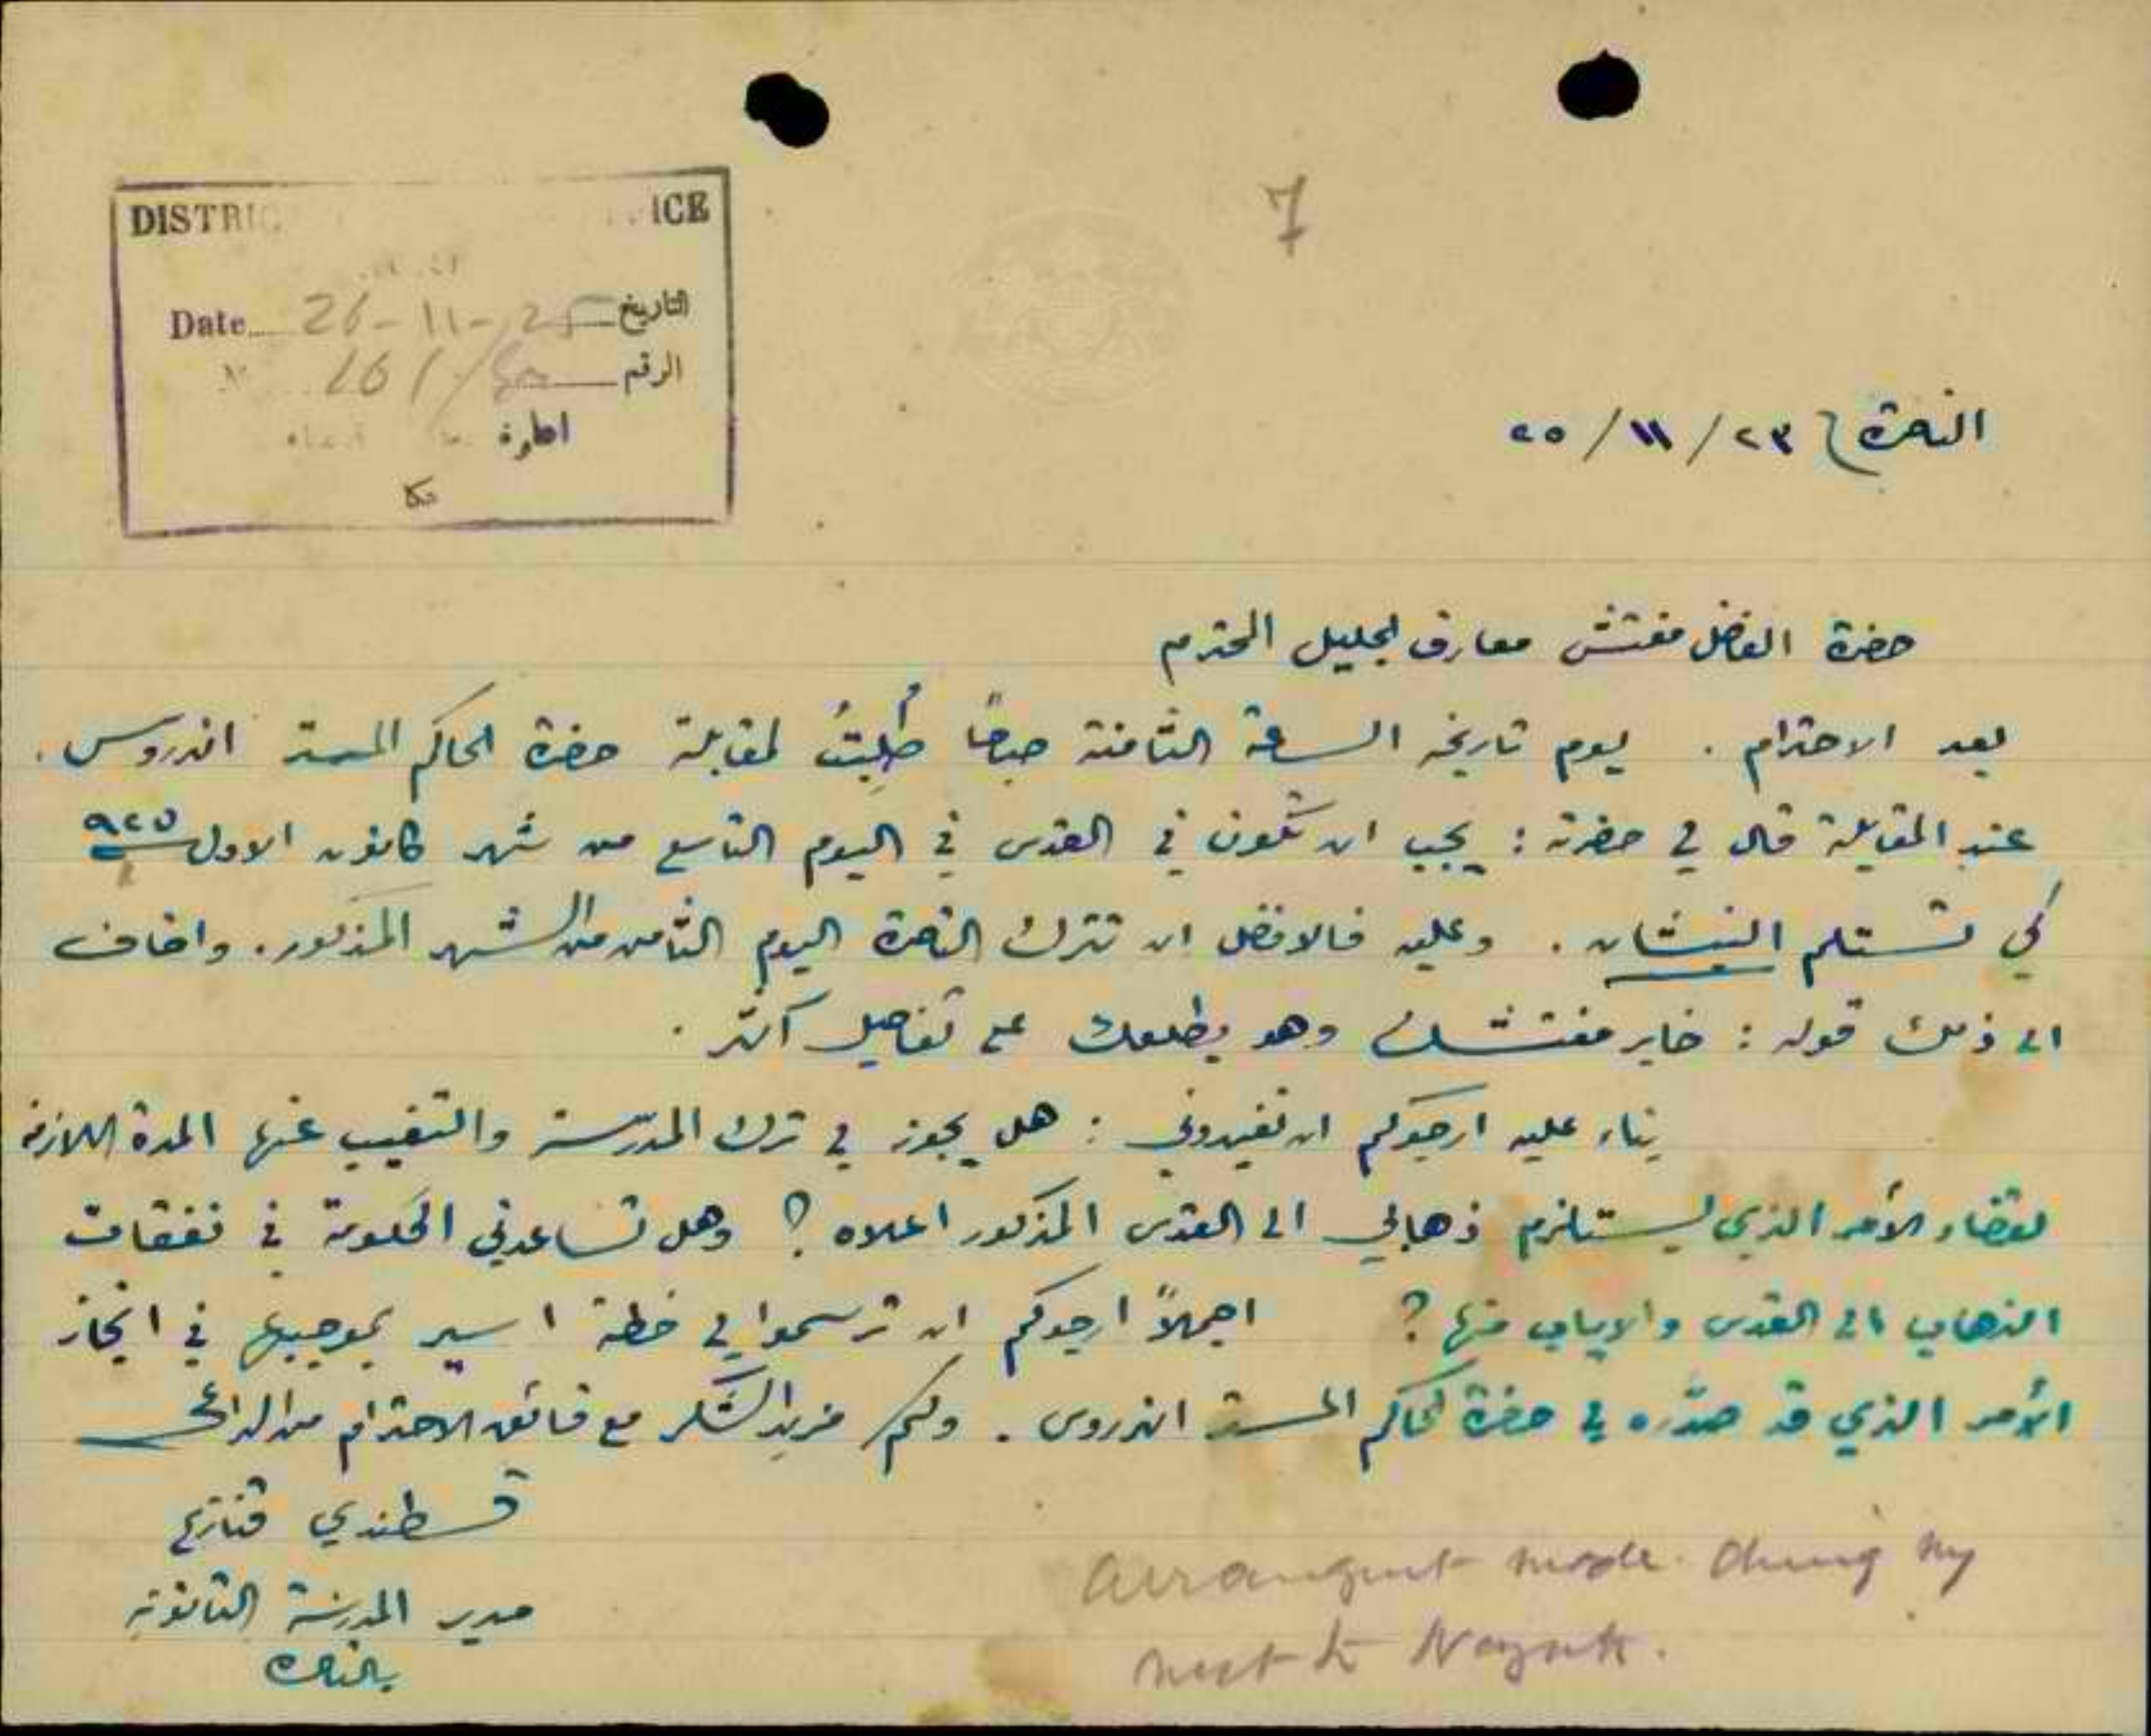 7
DISTRIC ICE
Date 26-11-25 التاريخ
161/ الرقم
عكا
الناصرة ٢٣/١١/٢٥
حضرة الفاضل مفتش معارف الجليل المحترم
بعد الاحترام. يوم تاريخه الساعة الثامنة صباحًا طُلِبتُ لمقابلة حضرة الحاكم المستر اندروس.
عند المقابلة قال لي حضرته: يجب ان تكون في القدس في اليوم التاسع من شهر كانون الاول ٩٢٥
كي تستلم النيشان. وعليه فالافضل ان تترك الناصرة اليوم الثامن من الشهر المذكور. واضاف
الى ذلك قوله: خابر مفتشك وهو يطلعك على تفاصيل اكثر.
بناء عليه ارجوكم ان تفيدوني: هل يجوز لي ترك المدرسة والتغيب عنها المدة اللازمة
لقضاء الأمر الذي يستلزم ذهابي الى القدس المذكور اعلاه؟ وهل تساعدني الحكومة في نفقات
الذهاب الى القدس والاياب منها؟ اجمالاً ارجوكم ان ترسموا لي خطة اسير بموجبها في انجاز
الأمر الذي قد صدّره لي حضرة الحاكم المستر اندروس. ولكم مزيد الشكر مع فائق الاحترام من الداعي
قسطندي قنازع
مدير المدرسة الثانوية
بالناصرة
Arrangement made during my
visit to Nazareth.